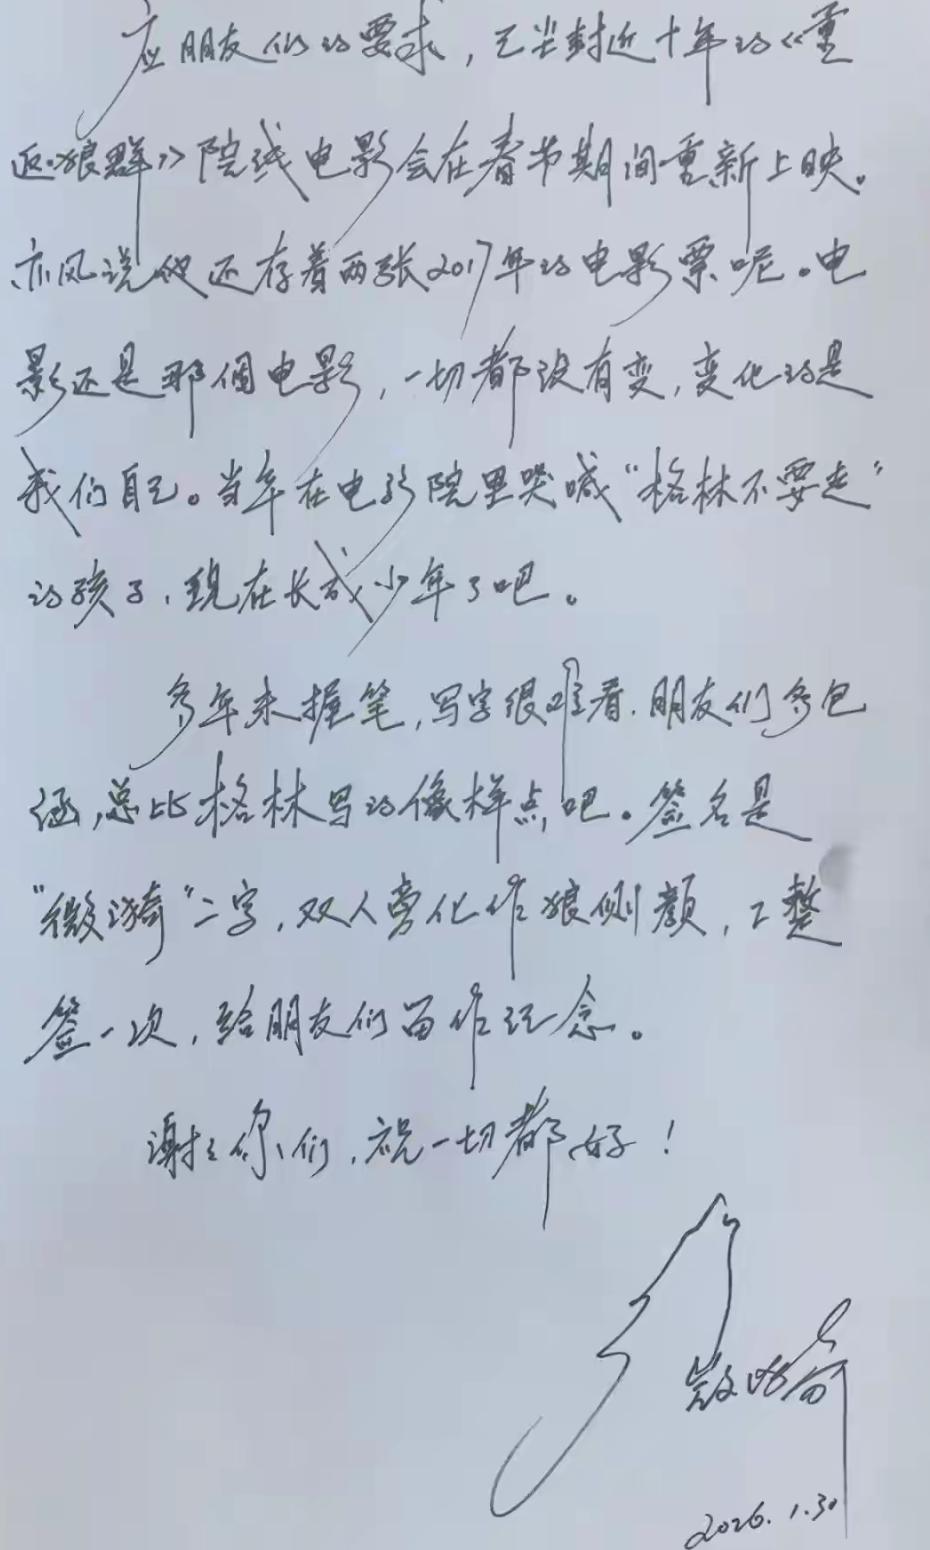 应朋友们的要求，已尘封近十年的《重
返·狼群》院线电影会在春节期间重新上映。
亦风说他还存着两张2017年的电影票呢。电
影还是那个电影，一切都没有变，变化的是
我们自己。当年在电影院里哭喊“格林不要走”
的孩子，现在长成少年了吧。
多年未握笔，写字很难看，朋友们多包
涵，总比格林写的像样点吧。签名是
“微漪”二字，双人旁化作狼侧颜，工整
签一次，给朋友们留作纪念。
谢谢你们，祝一切都好！
微漪
2026.1.30